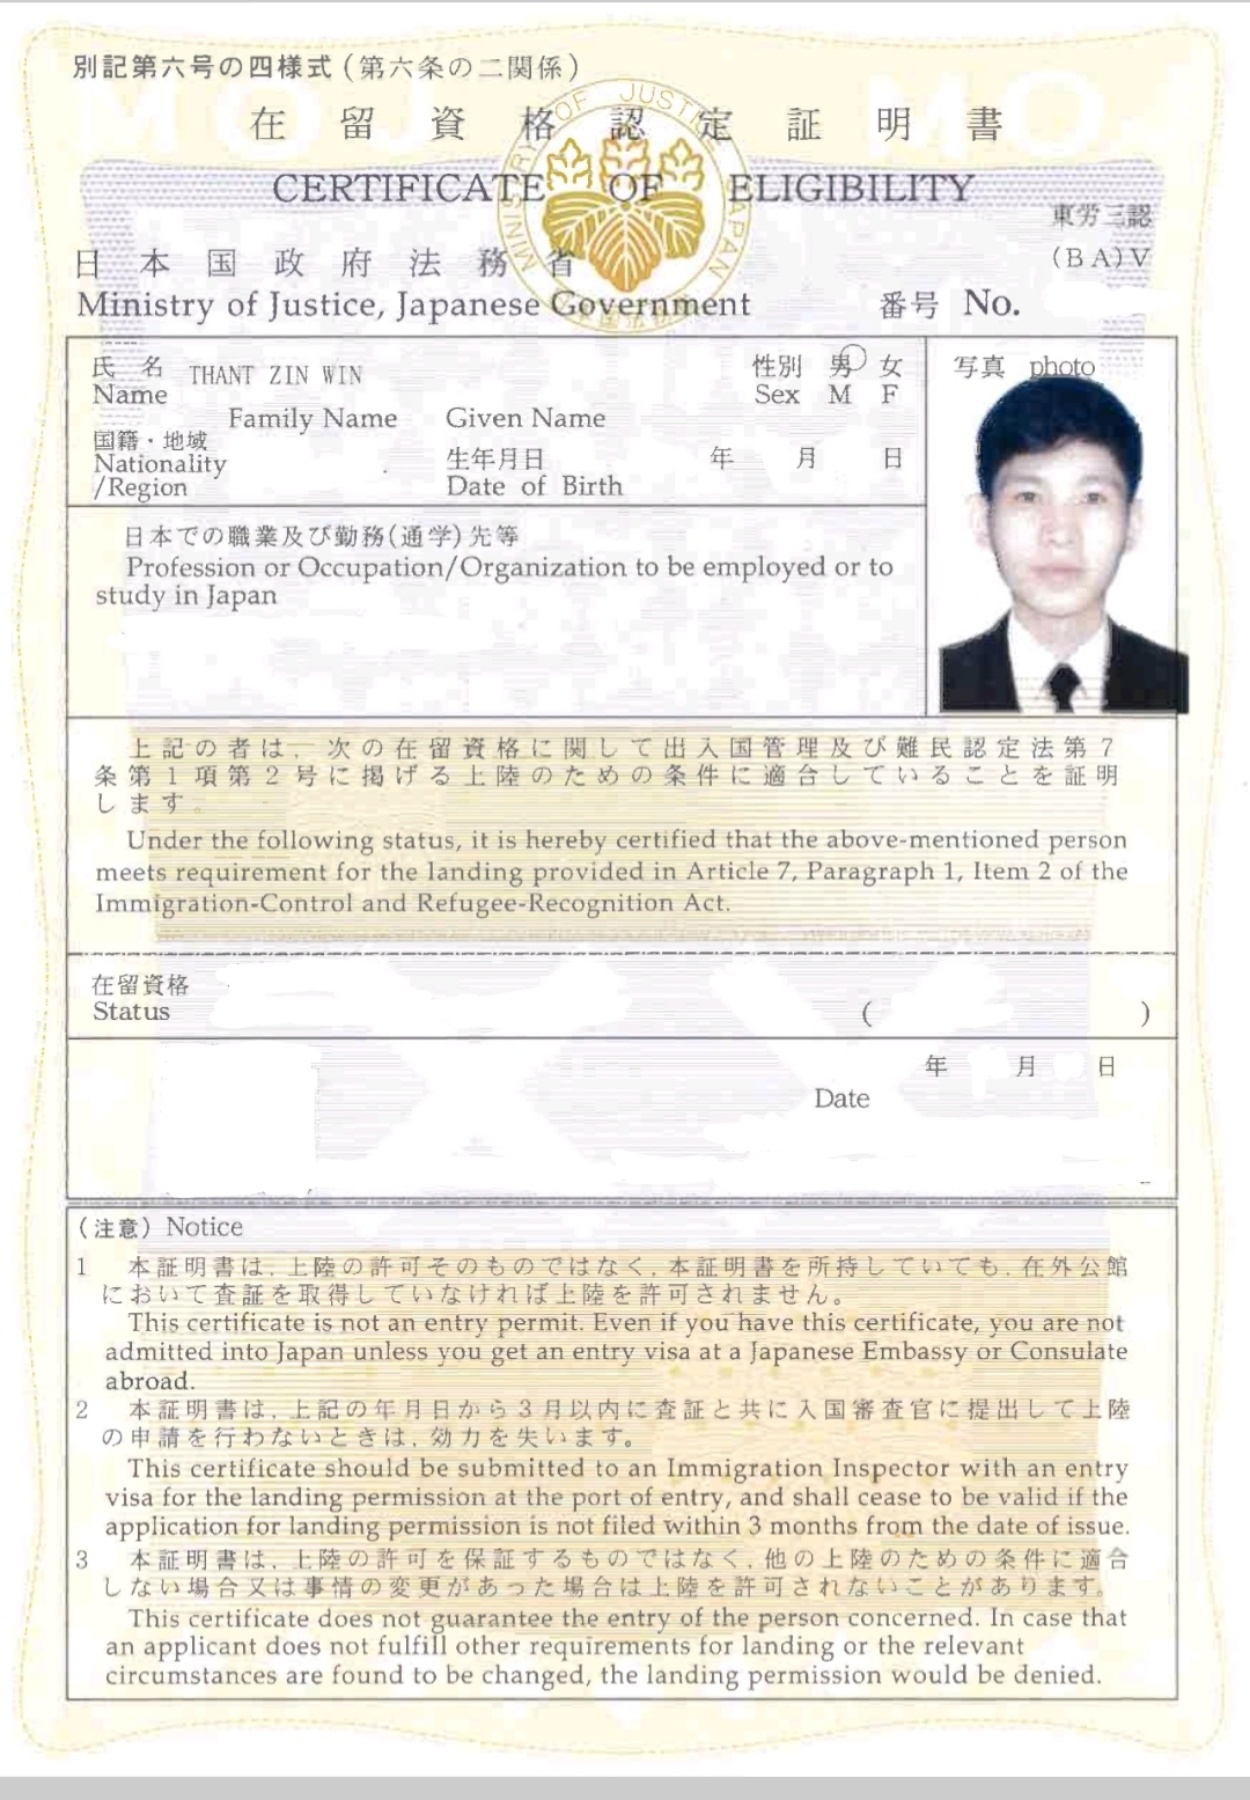 別記第六号の四様式(第六条の二関係)
在留資格認定証明書
CERTIFICATE OF ELIGIBILITY
MINISTRY OF JUSTICE JAPAN
東労三認
(BA)V
日本国政府法務省
Ministry of Justice, Japanese Government
番号 No.
氏名 THANT ZIN WIN
Name
性別 男 女
Sex M F
写真 photo
Family Name Given Name
国籍・地域
Nationality
/Region
生年月日 年 月 日
Date of Birth
日本での職業及び勤務(通学)先等
Profession or Occupation/Organization to be employed or to
study in Japan
上記の者は, 次の在留資格に関して出入国管理及び難民認定法第7
条第1項第2号に掲げる上陸のための条件に適合していることを証明
します。
Under the following status, it is hereby certified that the above-mentioned person
meets requirement for the landing provided in Article 7, Paragraph 1, Item 2 of the
Immigration-Control and Refugee-Recognition Act.
在留資格
Status ( )
年 月 日
Date
(注意) Notice
1 本証明書は, 上陸の許可そのものではなく, 本証明書を所持していても, 在外公館
において査証を取得していなければ上陸を許可されません。
This certificate is not an entry permit. Even if you have this certificate, you are not
admitted into Japan unless you get an entry visa at a Japanese Embassy or Consulate
abroad.
2 本証明書は, 上記の年月日から3月以内に査証と共に入国審査官に提出して上陸
の申請を行わないときは, 効力を失います。
This certificate should be submitted to an Immigration Inspector with an entry
visa for the landing permission at the port of entry, and shall cease to be valid if the
application for landing permission is not filed within 3 months from the date of issue.
3 本証明書は, 上陸の許可を保証するものではなく, 他の上陸のための条件に適合
しない場合又は事情の変更があった場合は上陸を許可されないことがあります。
This certificate does not guarantee the entry of the person concerned. In case that
an applicant does not fulfill other requirements for landing or the relevant
circumstances are found to be changed, the landing permission would be denied.